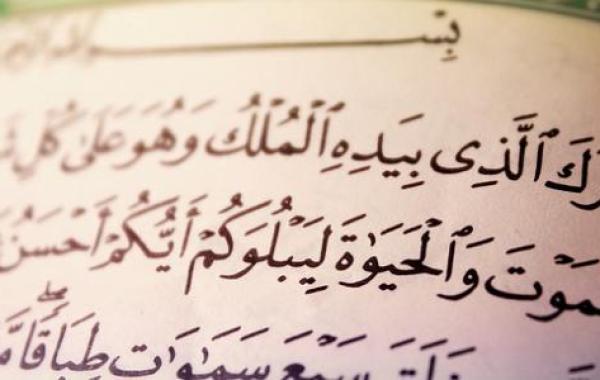 بِسْ
رَكَ ٱلَّذِى بِيَدِهِ ٱلْمُلْكُ وَهُوَ عَلَىٰ كُلِّ
مَوْتَ وَٱلْحَيَوٰةَ لِيَبْلُوَكُمْ أَيُّكُمْ أَحْسَنُ
سَبْعَ سَمَٰوَٰتٍ طِبَاقًا مَّا